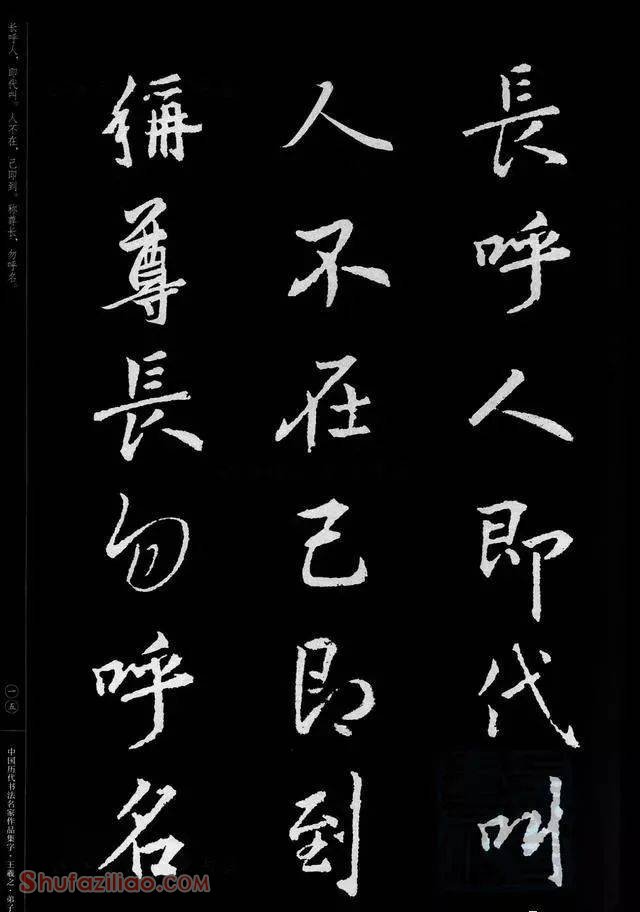 長呼人即代叫
人不在己即到
稱尊長勿呼名
长呼人，即代叫。人不在，己即到。称尊长，勿呼名。
一五
中国历代书法名家作品集字·王羲之·弟子
Shufaziliao.com